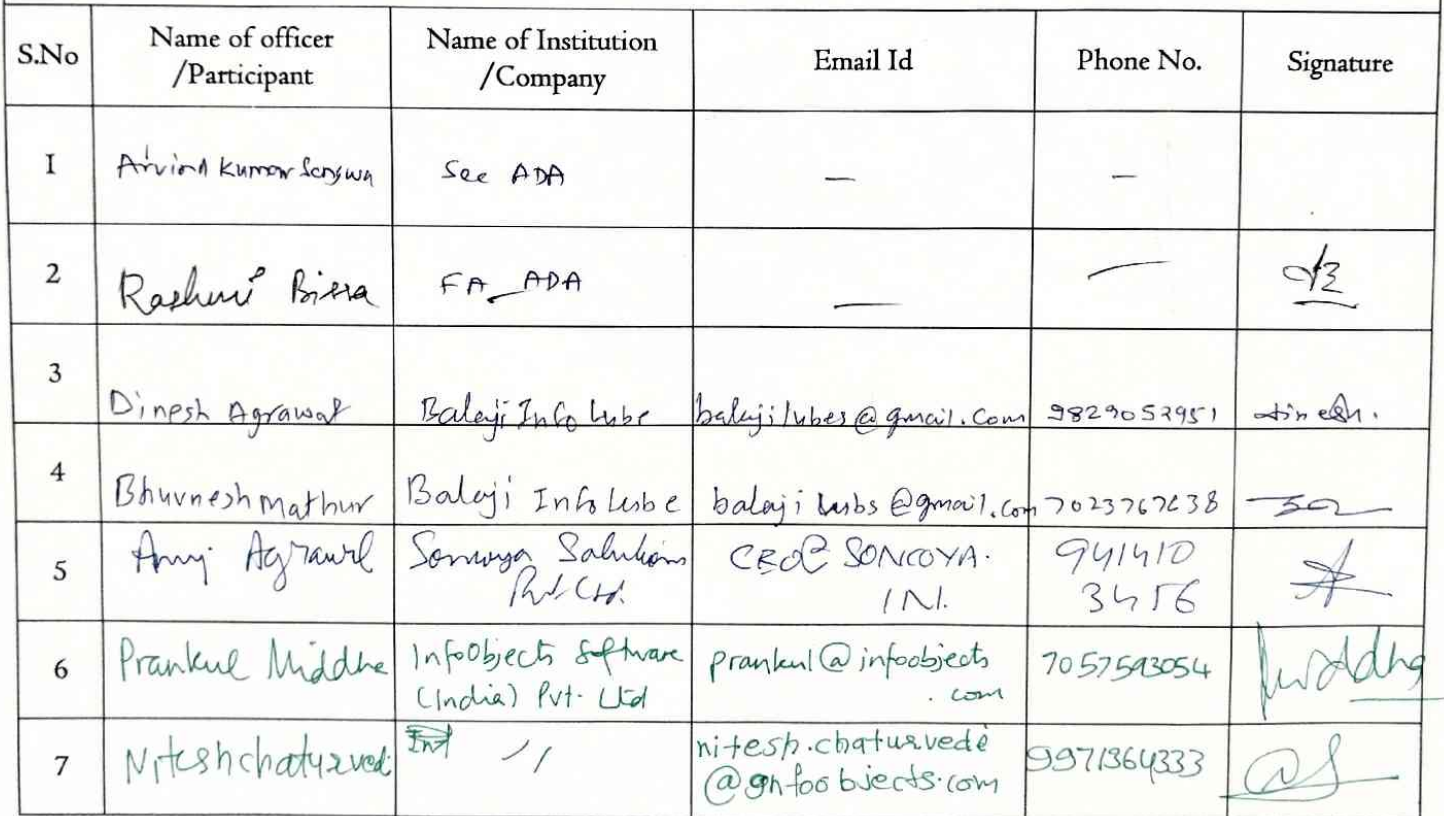 S.No Name of officer /Participant Name of Institution /Company Email Id Phone No. Signature
1 Arvind Kumar See ADA — —
2 Rashmi Bissa FA_ADA — —
3 Dinesh Agrawal Balaji Info lube balajilubes@gmail.com 9829052951 dinesh.
4 Bhuvnesh Mathur Balaji Info lube balajilubs@gmail.com 7023767638
5 Agrawal Solutions Pvt. Ltd. CEO@SONCOYA.
IN. 941410
3456
6 Prankul Middha InfoObjects Software prankul@infoobjects 7057593054
(India) Pvt. Ltd .com
7 Nitesh chaturvedi 〃 nitesh.chaturvedi 9971364333
@infoobjects.com